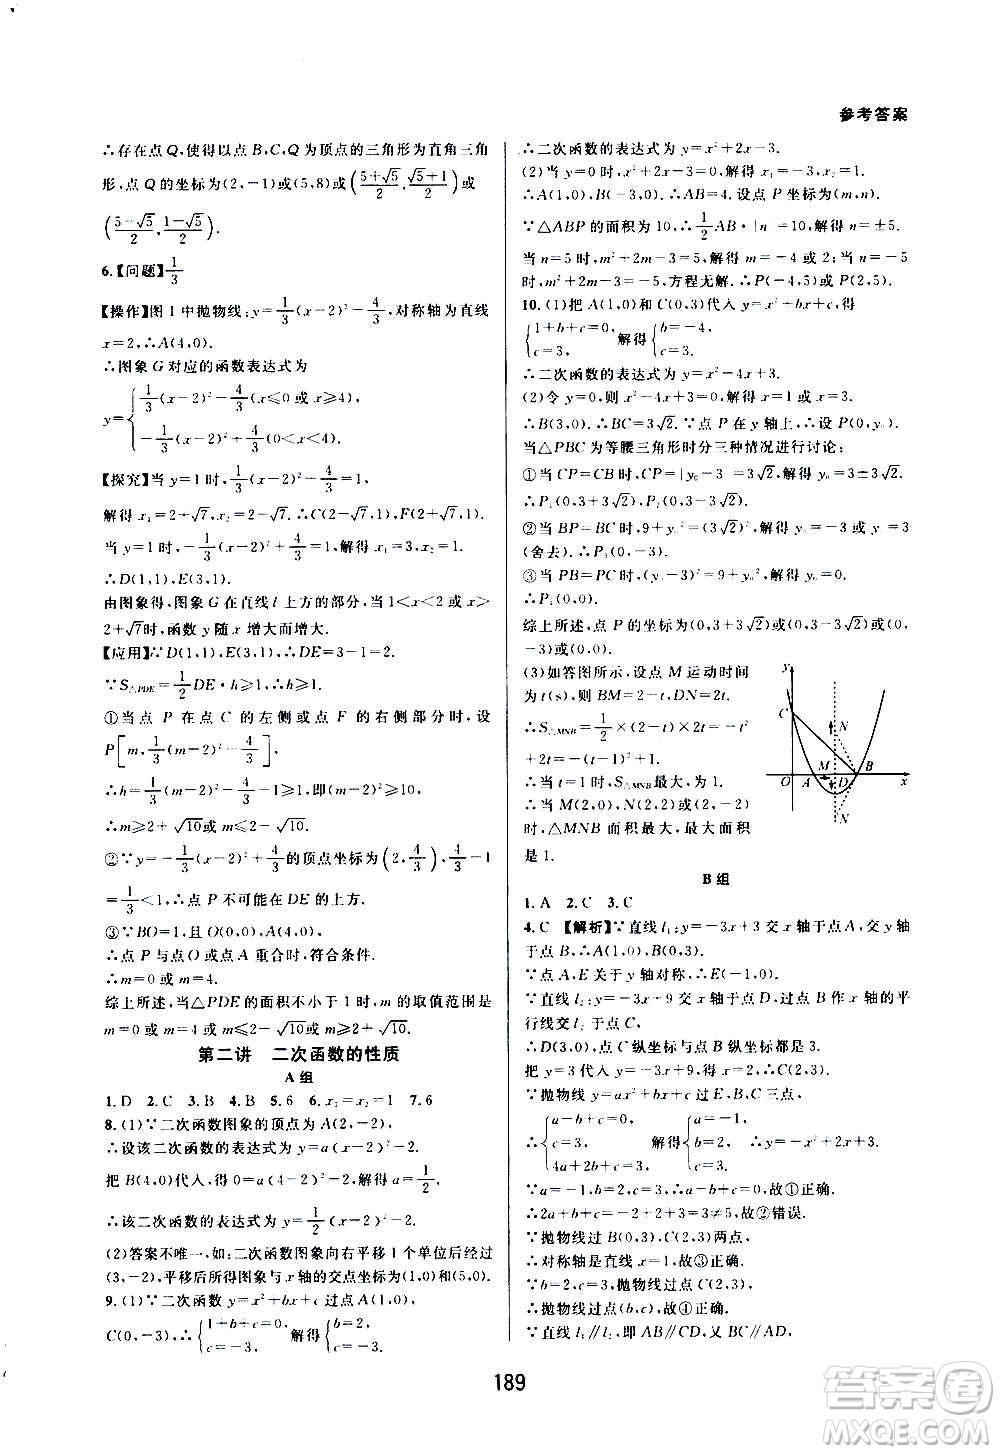 参考答案
∴存在点Q,使得以点B,C,Q为顶点的三角形为直角三角
形,点Q的坐标为(2,-1)或(5,8)或((5+√5)/2,(√5+1)/2)或
((5-√5)/2,(1-√5)/2).
6.【问题】1/3
【操作】图1中抛物线:y=1/3(x-2)²-4/3,对称轴为直线
x=2,∴A(4,0).
∴图象G对应的函数表达式为
y={1/3(x-2)²-4/3(x≤0或x≥4),
-1/3(x-2)²+4/3(0<x<4).
【探究】当y=1时,1/3(x-2)²-4/3=1,
解得x₁=2+√7,x₂=2-√7.∴C(2-√7,1),F(2+√7,1).
当y=1时,-1/3(x-2)²+4/3=1,解得x₁=3,x₂=1.
∴D(1,1),E(3,1).
由图象得,图象G在直线l上方的部分,当1<x<2或x>
2+√7时,函数y随x增大而增大.
【应用】∵D(1,1),E(3,1),∴DE=3-1=2.
∵S△PDE=1/2DE·h≥1,∴h≥1.
①当点P在点C的左侧或点F的右侧部分时,设
P[m,1/3(m-2)²-4/3],
∴h=1/3(m-2)²-4/3-1≥1,
∴m≥2+√10或m≤2-√10.
②∵y=-1/3(x-2)²+4/3的顶点坐标为(2,4/3),4/3-1
=1/3<1,∴点P不可能在DE的上方.
③∵BO=1,且O(0,0),A(4,0).
∴点P与点O或点A重合时,符合条件.
∴m=0或m=4.
综上所述,当△PDE的面积不小于1时,m的取值范围是
m=0或m=4或m≤2-√10或m≥2+√10.
第二讲 二次函数的性质
A组
1.D 2.C 3.B 4.B 5.6 6.x₁=x₂=1 7.6
8.(1)∵二次函数图象的顶点为A(2,-2),
∴设该二次函数的表达式为y=a(x-2)²-2.
把B(4,0)代入,得0=a(4-2)²-2.解得a=1/2.
∴该二次函数的表达式为y=1/2(x-2)²-2.
(2)答案不唯一,如:二次函数图象向右平移1个单位后经过
(3,-2),平移后所得图象与x轴的交点坐标为(1,0)和(5,0).
9.(1)∵二次函数y=x²+bx+c过点A(1,0),
C(0,-3),∴{1+b+c=0, c=-3. 解得{b=2, c=-3.
∴二次函数的表达式为y=x²+2x-3.
(2)当y=0时,x²+2x-3=0,解得x₁=-3,x₂=1.
∴A(1,0),B(-3,0).∴AB=4.设点P坐标为(m,n).
∵△ABP的面积为10,∴1/2AB·|n|=10,解得n=±5.
当n=5时,m²+2m-3=5,解得m=-4或2;∴P(-4,5)或P(2,5);
当n=-5时,m²+2m-3=-5,方程无解.∴P(-4,5)或(2,5).
10.(1)把A(1,0)和C(0,3)代入y=x²+bx+c,得
{1+b+c=0, c=3, 解得{b=-4, c=3.
∴二次函数的表达式为y=x²-4x+3.
(2)令y=0,则x²-4x+3=0,解得x=1或x=3.
∴B(3,0).∴BC=3√2.∵点P在y轴上,∴P(0,y₀).
当△PBC为等腰三角形时分三种情况进行讨论:
①当CP=CB时,PC=|y₀-3|=3√2,解得y₀=3±3√2.
∴P₁(0,3+3√2),P₂(0,3-3√2).
②当BP=BC时,9+y₀²=(3√2)²,解得y₀=-3或y₀=3
(舍去).∴P₃(0,-3).
③当PB=PC时,(y₀-3)²=9+y₀²,解得y₀=0.
∴P₄(0,0).
综上所述,点P的坐标为(0,3+3√2)或(0,3-3√2)或(0,
-3)或(0,0).
(3)如答图所示,设点M运动时间
为t(s),则BM=2-t,DN=2t.
∴S△MNB=1/2×(2-t)×2t=-t²
+2t=-(t-1)²+1.
∴当t=1时,S△MNB最大,为1.
∴当M(2,0),N(2,2)或(2,-2)
时,△MNB面积最大,最大面积
是1.
y C N M B O A D x N
B组
1.A 2.C 3.C
4.C 【解析】∵直线l₁:y=-3x+3交x轴于点A,交y轴
于点B,∴A(1,0),B(0,3).
∵点A,E关于y轴对称,∴E(-1,0).
∵直线l₂:y=-3x+9交x轴于点D,过点B作x轴的平
行线交l₂于点C,
∴D(3,0),点C纵坐标与点B纵坐标都是3.
把y=3代入y=-3x+9,得x=2,∴C(2,3).
∵抛物线y=ax²+bx+c过E,B,C三点,
∴{a-b+c=0, c=3, 4a+2b+c=3. 解得{a=-1, b=2, c=3. ∴y=-x²+2x+3.
∵a=-1,b=2,c=3,∴a-b+c=0,故①正确.
∴2a+b+c=-2+2+3=3≠5,故②错误.
∵抛物线过B(0,3),C(2,3)两点,
∴对称轴为直线x=1,故③正确.
∵b=2,c=3,抛物线过点C(2,3),
∴抛物线过点(b,c),故④正确.
∵直线l₁∥l₂,即AB∥CD,又BC∥AD,
189
答案圈